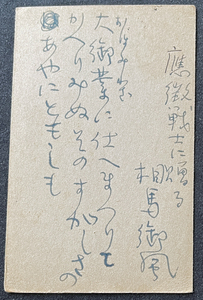 應徴戦士に贈る
相馬御風
おほみわざ
大御業に仕へまつると
かへりみぬそのすが〲しさの
あやにともしも